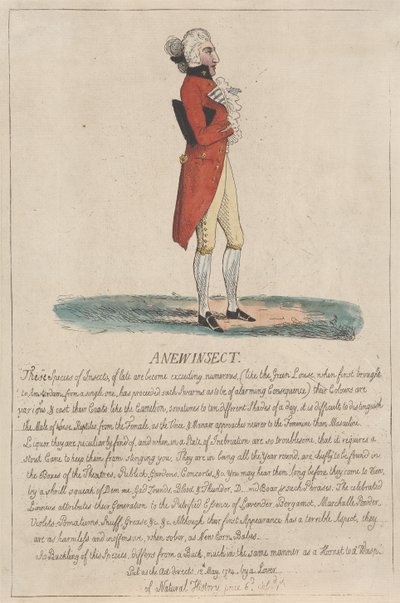 A NEW INSECT.
These Species of Insects, of late are become exceeding numerous, (like the Green Louse, when first brought
to Amsterdam, from a single one, has proceed such Swarms as to be of alarming Consequence) their Colours are
various & cast their Coats like the Camelion, sometimes to ten different Shades of a day, it is difficult to distinguish
the Male of these Reptiles from the Female, as the Voice & Manner approaches nearer to the Feminine than Masculine.
Liquor they are peculiarly fond of, and when in a State of Inebriation are so troublesome that it requires a
stout Cane to keep them from stinging you. They are in being all the year round, are chiefly to be found in
the Boxes of the Theatres, Publick Gardens, Concerts, &c. You may hear them long before they come to View,
by a shrill squeak of Dem me, Gad Zounds, Blood & Thunder, D and such Phrases. The celebrated
Linnæus attributes their Generation to the Putrefied Essence of Lavender, Bergamot, Marshalle Powder,
Violets, Pomatums, Snuff, Grease &c. &c. Although their first Appearance has a terrible Aspect, they
are as harmless and inoffensive, when sober, as New Born Babes.
A Buckling of this Species, differs from a Buck, much in the same manner as a Hornet to a Wasp.
Pub. as the Act directs 12th May, 1784, by a Lover
of Natural History price 6d